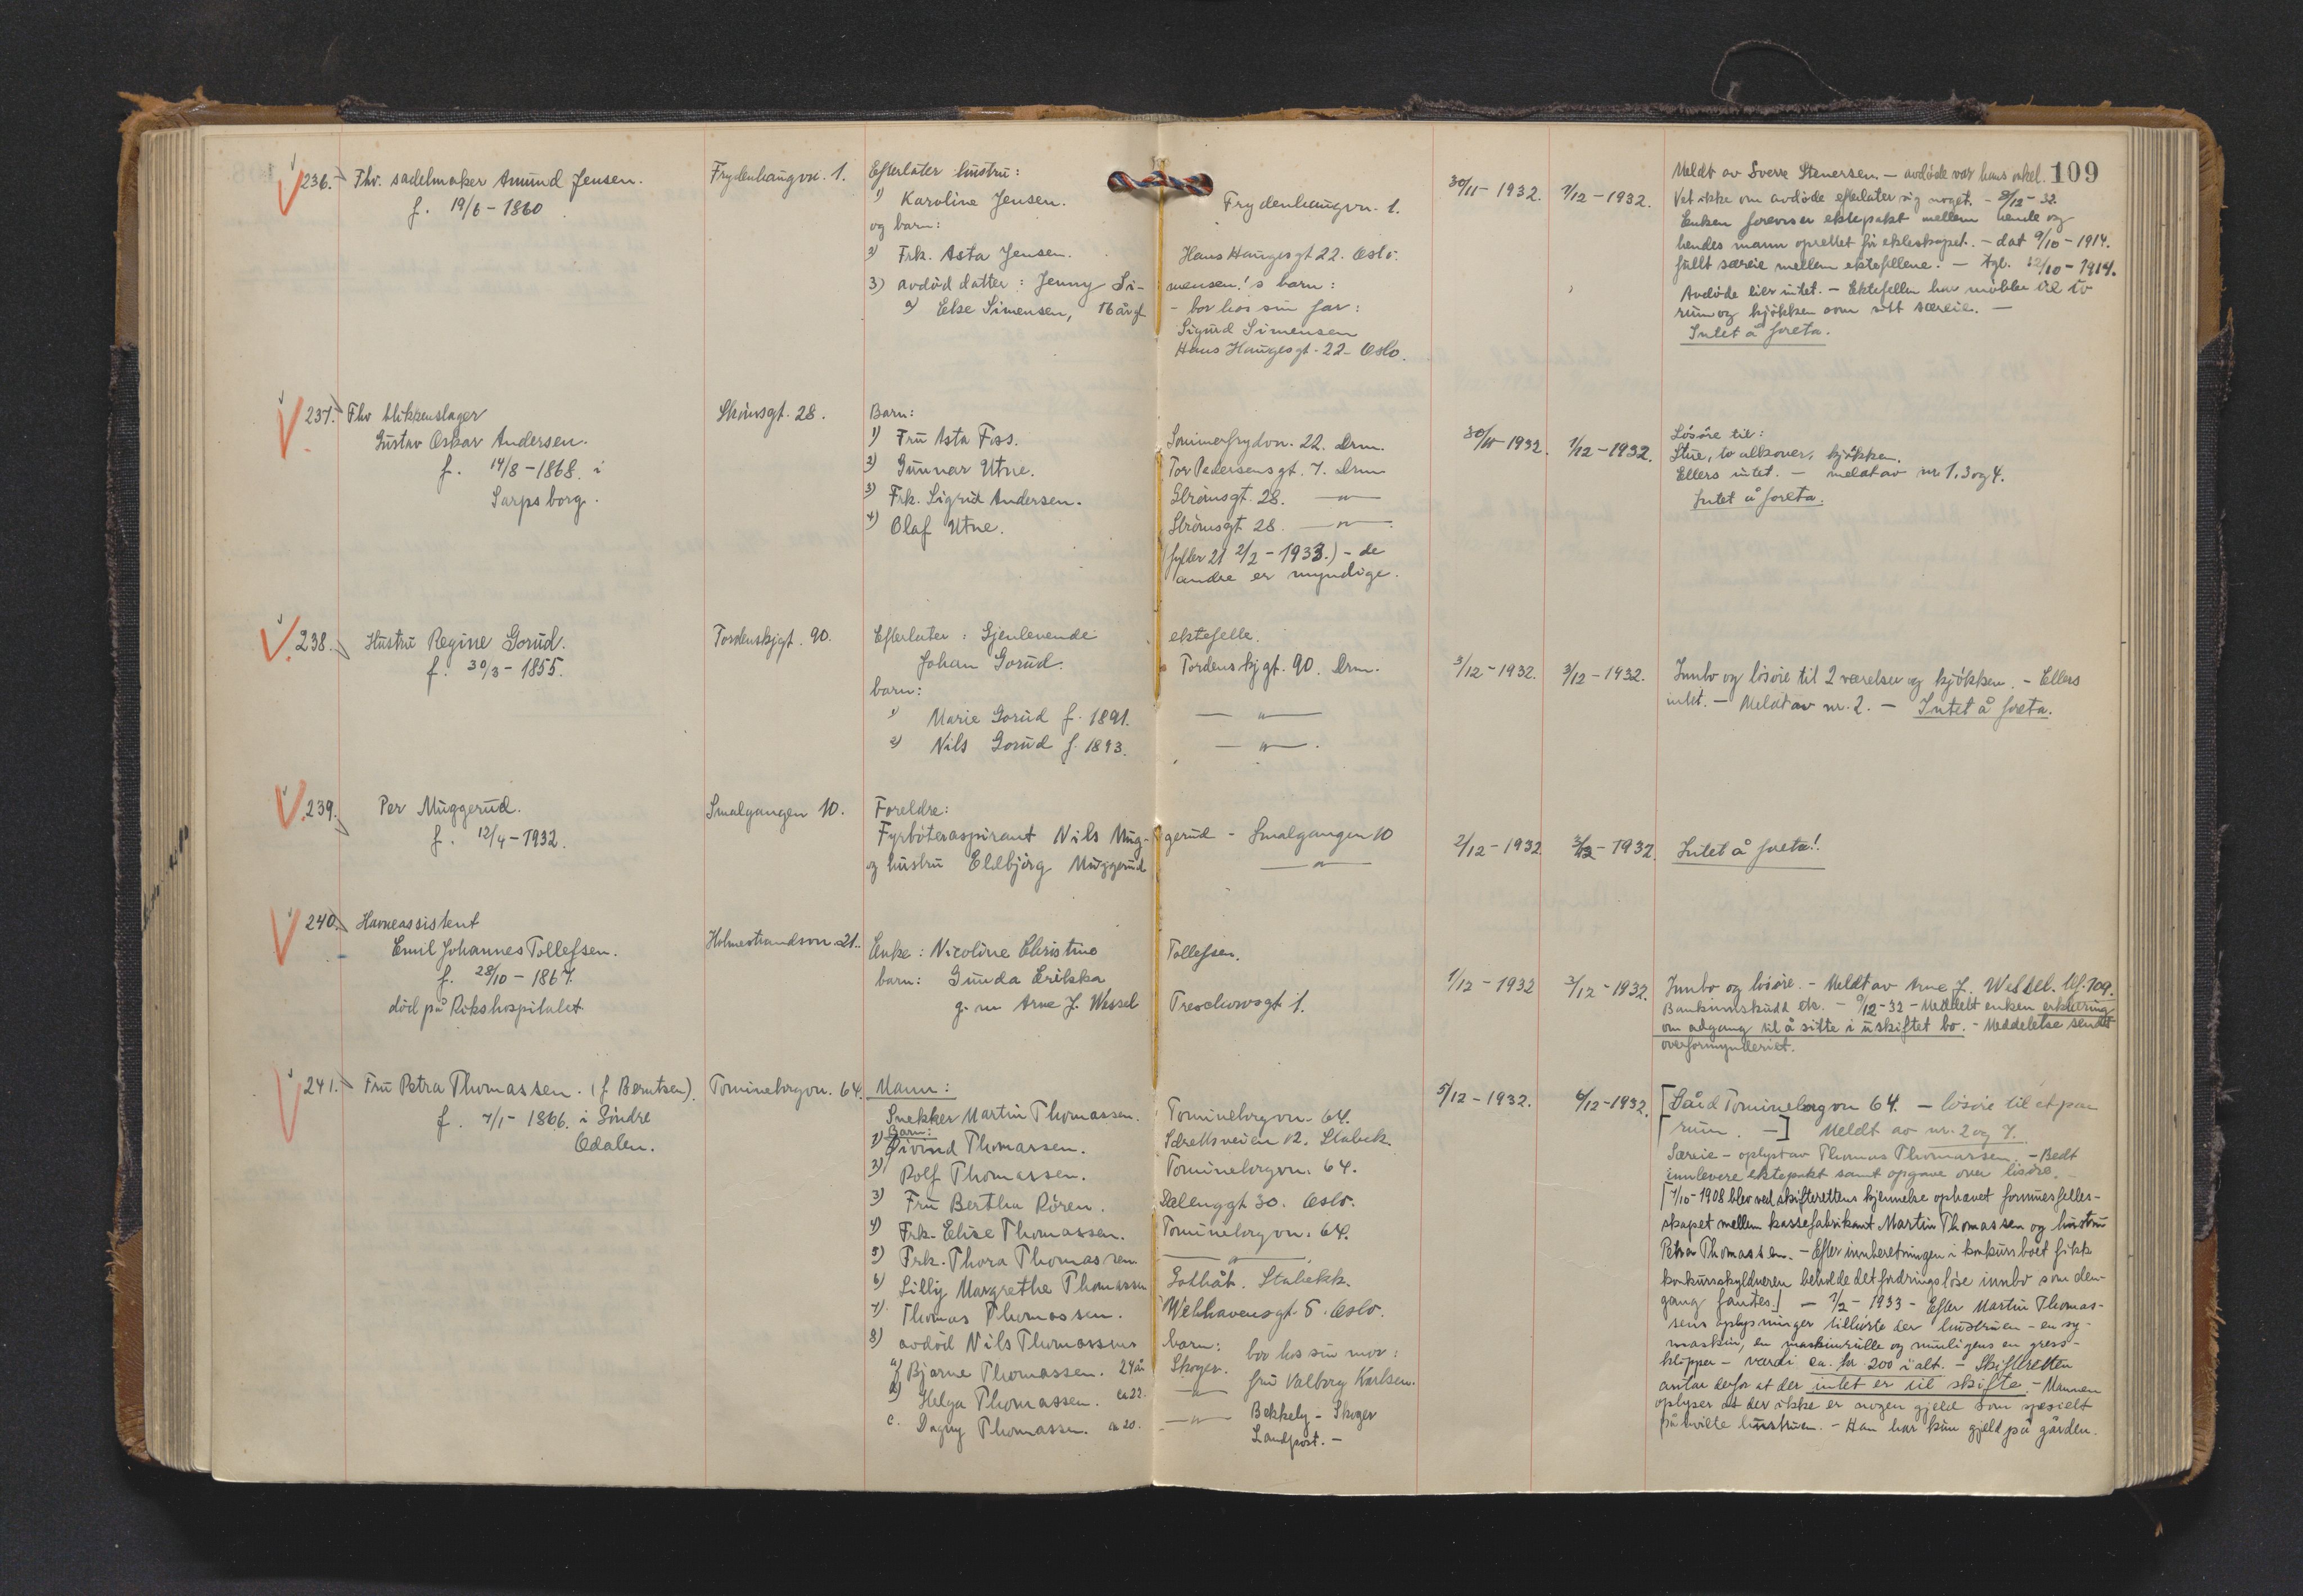 109
236. Fhv. sadelmaker Amund Jensen.
f. 19/6 - 1860
Frydenhaugvn. 1.
Efterlater hustru:
1) Karoline Jensen. Frydenhaugvn. 1.
og barn:
2) Frk. Asta Jensen. Hans Haugesgt 22. Oslo.
3) avdöd datter: Jenny Si- mensen's barn:
a) Else Simensen, 16 år gl - bor hos sin far:
Sigurd Simensen
Hans Haugesgt. 22 - Oslo.
30/11 - 1932. 1/12 - 1932.
Meldt av Sverre Stenersen. - avdöde var hans onkel.
Vet ikke om avdöde efterlater sig noget. - 2/12 - 32.
Enken foreviser ektepakt mellem hende og
hendes mann oprettet för ekteskapet. - dat 9/10 - 1914.
fullt særeie mellem ektefellene. - tgl. 12/10 - 1914.
Avdöde eier intet. - Ektefellen har möbler til to
rum og kjökken som sitt særeie. -
Intet å foreta.
237. Fhv blikkenslager
Gustav Oskar Andersen.
f. 14/8 - 1868. i
Sarpsborg.
Strömsgt. 28.
Barn:
1) Fru Asta Foss. Sommerfrydvn. 22. Drm.
2) Gunnar Utne. Tor Pedersensgt. 7. Drm
3) Frk. Sigrid Andersen. Strömsgt. 28. - " -
4) Olaf Utne. Strömsgt 28. - " -
(fyller 21 2/2 - 1933.) - de
andre er myndige.
30/11 - 1932. 1/12 - 1932.
Lösöre til:
Stue, to alkover, kjökken.
Ellers intet. - meldt av nr. 1, 3 og 4.
Intet å foreta.
238. Hustru Regine Gorud.
f. 30/3 - 1855.
Tordenskjgt. 90.
Efterlater: Gjenlevende ektefelle.
Johan Gorud. Tordenskjgt. 90. Drm.
barn:
1) Marie Gorud f. 1891. - " -
2) Nils Gorud f. 1893. - " -.
3/12 - 1932. 3/12 - 1932.
Innbo og lösöre til 2 værelser og kjökken. - Ellers
intet. - Meldt av nr. 2. - Intet å foreta.
239. Per Muggerud.
f. 12/4 - 1932.
Smalgangen 10.
Foreldre:
Fyrböteraspirant Nils Mug- gerud - Smalgangen 10
og hustru Eldbjörg Muggerud - " -
2/12 - 1932 3/12 - 1932.
Intet å foreta!
240. Havneassistent
Emil Johannes Tollefsen.
f. 28/10 - 1867.
död på Rikshospitalet
Holmestrandsvn 21.
Enke: Nicoline Christine Tollefsen.
barn: Gunda Erikka
g. m Arne J. Wessel Treschowsgt 1.
1/12 - 1932 3/12 - 1932.
Innbo og lösöre. - Meldt av Arne J. Wessel. tlf. 709.
Bankinnskudd etc. - 9/12 - 32 - Meddelt enken erklæring
om adgang til å sitte i uskiftet bo. - Meddelelse sendt
overformynderiet.
241. Fru Petra Thomassen. (f Berntsen).
f. 7/1 - 1866. i Söndre
Odalen.
Tomineborgvn. 64.
Mann:
Snekker Martin Thomassen. Tomineborgvn. 64.
Barn:
1) Öivind Thomassen. Idrettsveien 12. Stabek.
2) Rolf Thomassen. Tomineborgvn. 64.
3) Fru Bertha Rören. Dælenggt 30. Oslo.
4) Frk. Elise Thomassen. Tomineborgvn. 64.
5) Frk. Thora Thomassen - " -
6) Lilly Margrethe Thomassen Godthåb. Stabekk.
7) Thomas Thomassen. Welhavensgt. 5. Oslo.
8) avdöd Nils Thomassens barn: bor hos sin mor:
a) Bjarne Thomassen. 24 år Skoger. fru Valborg Karlsen.
b) Helga Thomassen. ca 22. - " -
c. Dagny Thomassen. ca 20. - " - Bekkely - Skoger
Landpost. -
5/12 - 1932. 6/12 - 1932.
[Gård Tomineborgvn 64. - lösöre til et par
rum. -] Meldt av nr. 2 og 7.
Særeie - oplyst av Thomas Thomassen. - Bedt
innlevere ektepakt samt opgave over lösöre. -
[7/10 - 1908 blev ved skifterettens kjennelse ophævet formuesfelles-
skapet mellem kassefabrikant Martin Thomassen og hustru
Petra Thomassen. - Efter innberetningen i konkursboet fikk
konkursskyldneren beholde det fordringslöse innbo som den-
gang fantes.] - 7/2 - 1933 - Efter Martin Thomas-
sens oplysninger tilhörte der hustruen - en sy-
maskin, en maskinrulle og muligens en gress-
klipper - verdi ca. kr. 200 i alt. - Skifteretten
antar derfor at der intet er til skifte. - Mannen
oplyser at der ikke er nogen gjeld som spesielt
påhvilte hustruen. - Han har kun gjeld på gården.